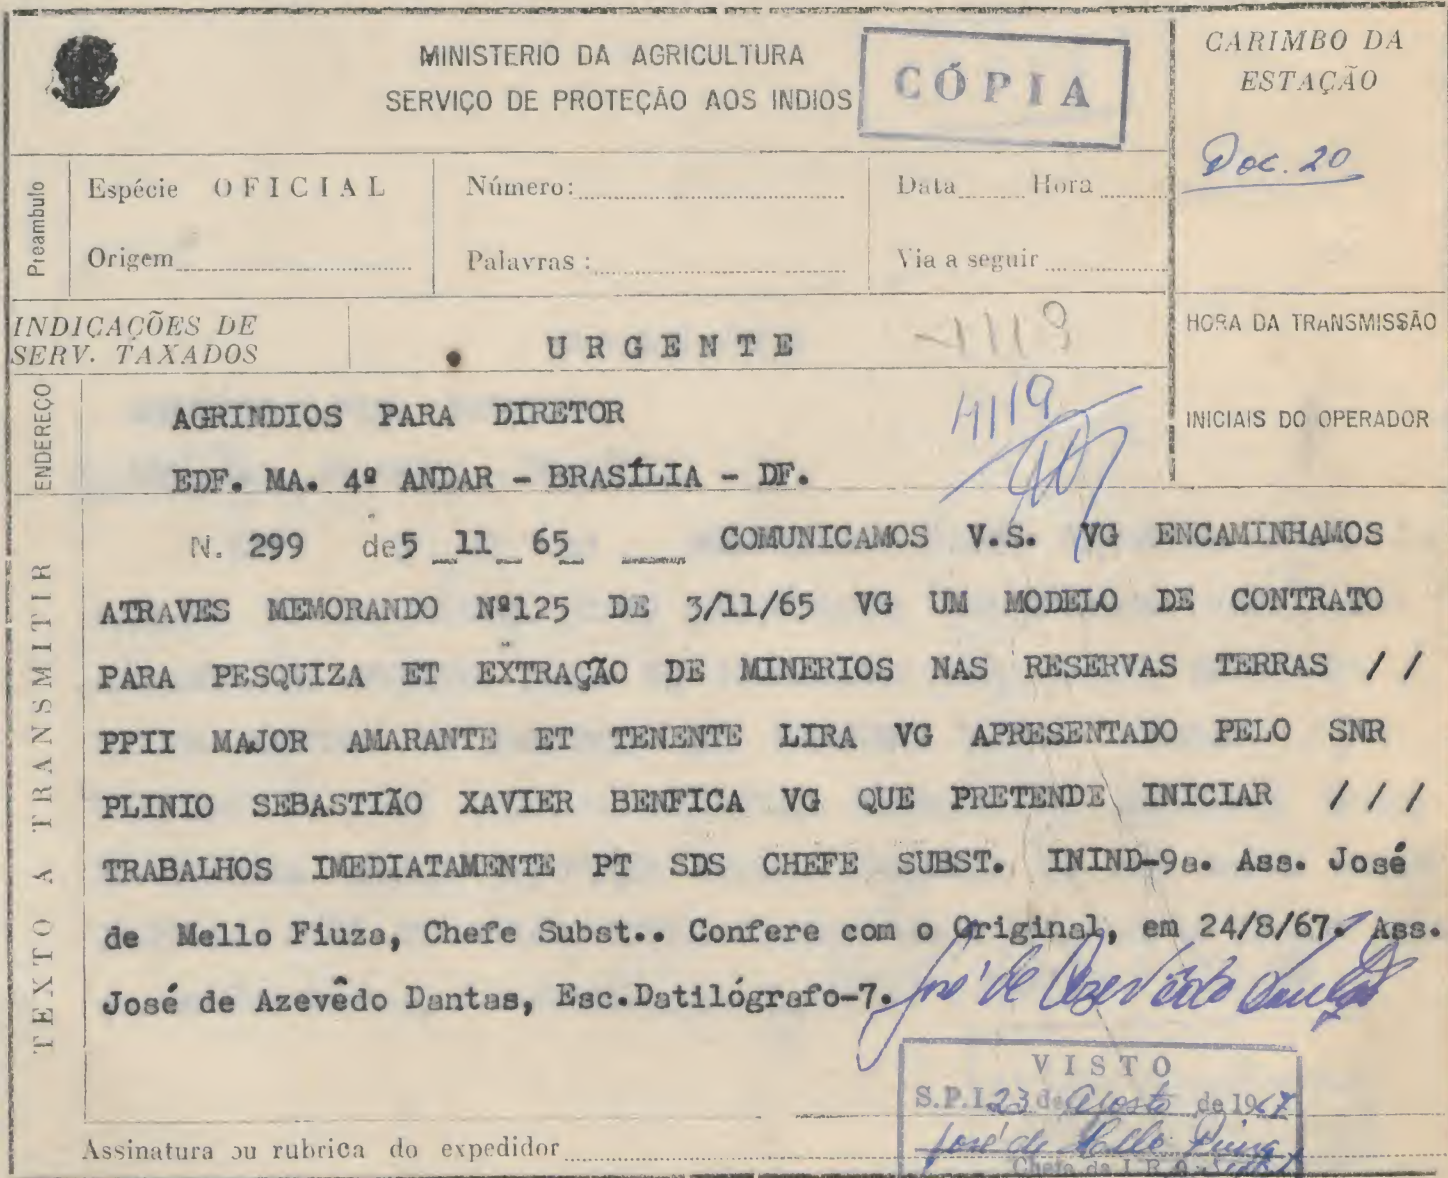 MINISTERIO DA AGRICULTURA
SERVIÇO DE PROTEÇÃO AOS INDIOS
CÓPIA
CARIMBO DA
ESTAÇÃO
Doc. 20
Preambulo
Espécie OFICIAL
Número:
Data Hora
Origem
Palavras :
Via a seguir
INDICAÇÕES DE
SERV. TAXADOS
URGENTE
1119
HORA DA TRANSMISSÃO
ENDEREÇO
AGRINDIOS PARA DIRETOR
4119
INICIAIS DO OPERADOR
EDF. MA. 4º ANDAR - BRASÍLIA - DF.
TEXTO A TRANSMITIR
N. 299 de 5 11 65 COMUNICAMOS V.S. VG ENCAMINHAMOS
ATRAVES MEMORANDO Nº125 DE 3/11/65 VG UM MODELO DE CONTRATO
PARA PESQUIZA ET EXTRAÇÃO DE MINERIOS NAS RESERVAS TERRAS / /
PPII MAJOR AMARANTE ET TENENTE LIRA VG APRESENTADO PELO SNR
PLINIO SEBASTIÃO XAVIER BENFICA VG QUE PRETENDE INICIAR / / /
TRABALHOS IMEDIATAMENTE PT SDS CHEFE SUBST. ININD-9a. Ass. José
de Mello Fiuza, Chefe Subst.. Confere com o Original, em 24/8/67. Ass.
José de Azevêdo Dantas, Esc.Datilógrafo-7. José de Azevêdo Dantas
VISTO
S.P.I. 23 de Agosto de 1967
José de Mello Fiuza
Chefe da I.R. 9 Subst
Assinatura ou rubrica do expedidor